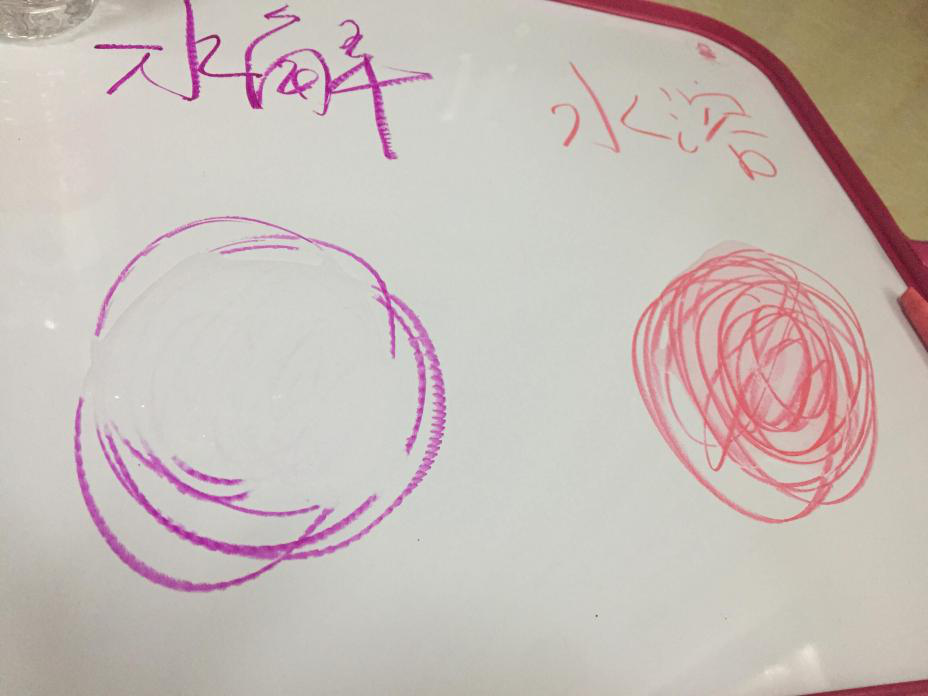 水解
水溶